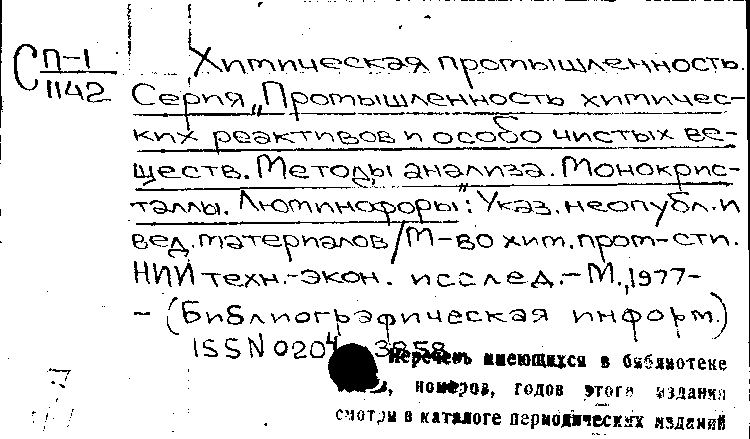 С П-1
1142
Химическая промышленность.
Серия „Промышленность химичес-
ких реактивов и особо чистых ве-
ществ. Методы анализа. Монокрис-
таллы. Люминофоры": Указ. неопубл. и
вед. материалов / М-во хим. пром-сти.
НИИ техн.-экон. исслед. - М., 1977-
- (Библиографическая информ.)
ISSN 0204-3858
Перечень имеющихся в библиотеке
номеров, годов этого издания
смотри в каталоге периодических изданий